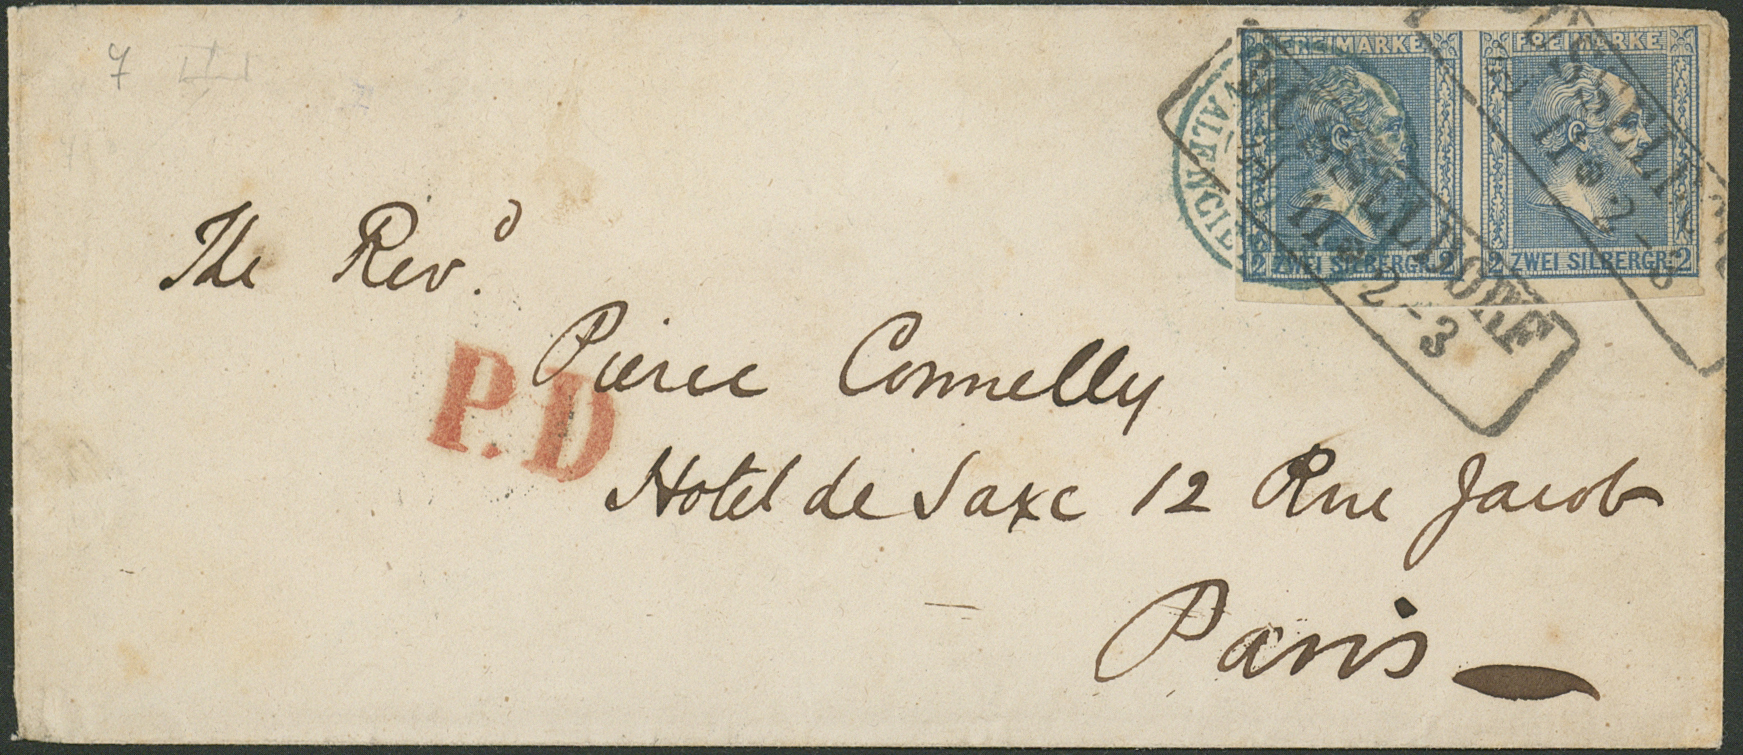 FREIMARKE FREIMARKE
DÜSSELDORF
11 * 2-3
11 * 2-3
2 ZWEI SILBERGR: 2
2 ZWEI SILBERGR: 2
The Revd.
P.D
Pierce Connelly
Hotel de Saxe 12 Rue Jacob
Paris